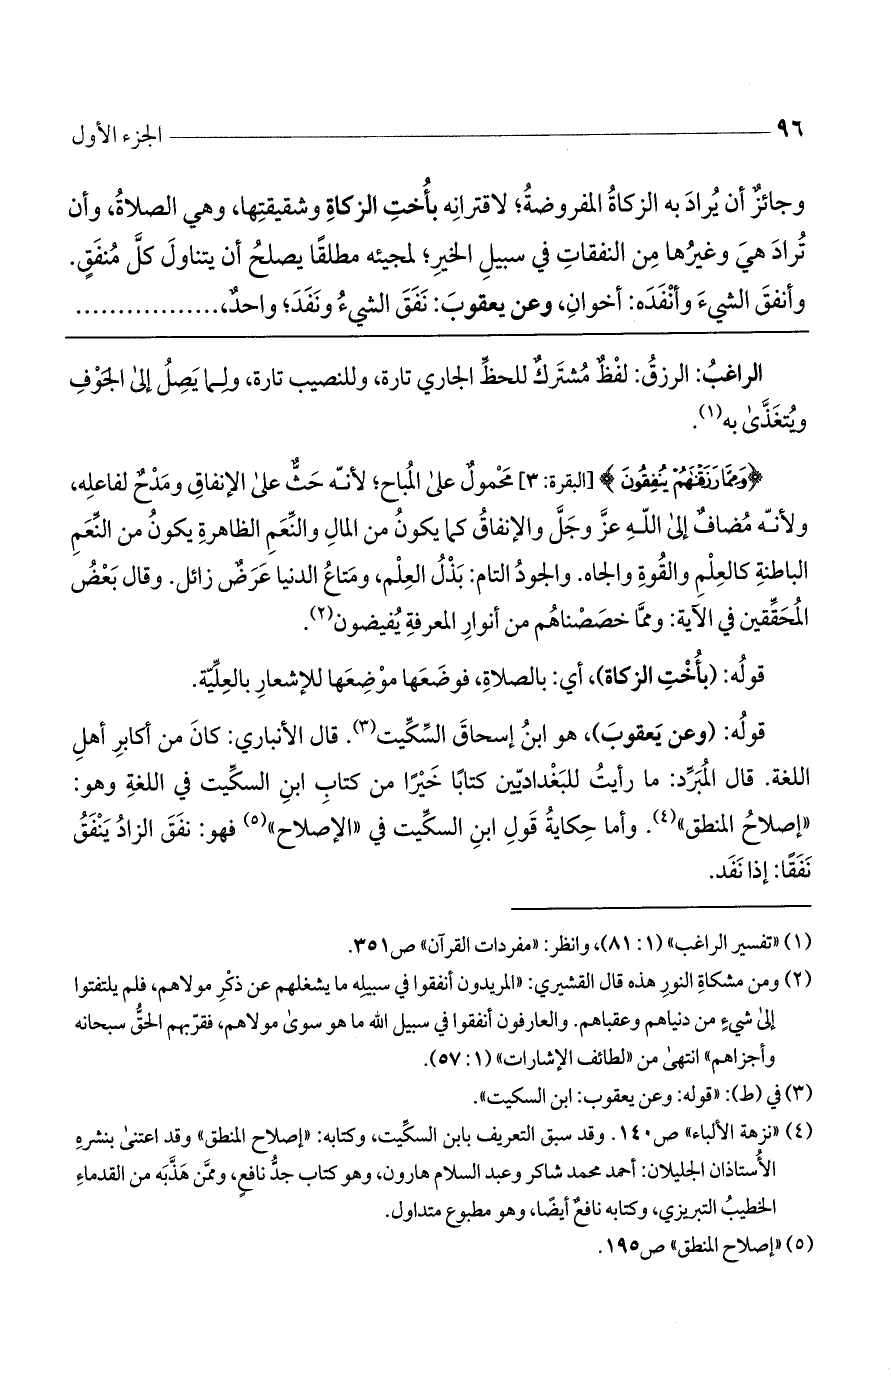 ٩٦ الجزء الأول
وجائزٌ أن يُرادَ به الزكاةُ المفروضةُ؛ لاقترانِه بأُختِ الزكاةِ وشقيقتِها، وهي الصلاةُ، وأن
تُرادَ هيَ وغيرُها مِن النفقاتِ في سبيلِ الخيرِ؛ لمجيئه مطلقًا يصلحُ أن يتناولَ كلَّ مُنفَقٍ.
وأنفقَ الشيءَ وأنْفَدَه: أخوانِ، وعن يعقوبَ: نَفَقَ الشيءُ ونَفَدَ؛ واحدٌ،.................
الراغبُ: الرزقُ: لفْظٌ مُشتَركٌ للحظِّ الجاري تارة، وللنصيب تارة، ولِما يَصِلُ إلىٰ الجَوْفِ
ويُتغَذَّىٰ به(١).
﴿وَمِمَّا رَزَقْنَٰهُمْ يُنفِقُونَ﴾ [البقرة: ٣] مَحْمولٌ علىٰ المُباح؛ لأنّه حَثٌّ علىٰ الإنفاقِ ومَدْحٌ لفاعلِه،
ولأنّه مُضافٌ إلىٰ اللهِ عزَّ وجَلَّ والإنفاقُ كما يكونُ من المالِ والنِّعَمِ الظاهرةِ يكونُ من النِّعَمِ
الباطنةِ كالعِلْمِ والقُوةِ والجاه. والجودُ التام: بَذْلُ العِلْم، ومَتاعُ الدنيا عَرَضٌ زائل. وقال بَعْضُ
المُحَقِّقين في الآية: وممَّا خصَصْناهُم من أنوارِ المعرفةِ يُفيضون(٢).
قولُه: (بأُخْتِ الزكاة)، أي: بالصلاةِ، فوضَعَها موْضِعَها للإشعارِ بالعِلِّيّة.
قولُه: (وعن يَعقوبَ)، هو ابنُ إسحاقَ السِّكِّيت(٣). قال الأنباري: كانَ من أكابرِ أهلِ
اللغة. قال المُبَرِّد: ما رأيتُ للبَغْداديّين كتابًا خَيْرًا من كتابِ ابنِ السكِّيت في اللغةِ وهو:
«إصلاحُ المنطق»(٤). وأما حِكايةُ قَولِ ابنِ السكِّيت في «الإصلاح»(٥) فهو: نفَقَ الزادُ يَنْفَقُ
نَفَقًا: إذا نَفَد.
(١) «تفسير الراغب» (١: ٨١)، وانظر: «مفردات القرآن» ص٣٥١.
(٢) ومن مشكاةِ النورِ هذه قال القشيري: «المريدون أنفقوا في سبيلِه ما يشغلهم عن ذكْرِ مولاهم، فلم يلتفتوا
إلىٰ شيءٍ من دنياهم وعقباهم. والعارفون أنفقوا في سبيل الله ما هو سوىٰ مولاهم، فقرّبهم الحقُّ سبحانه
وأجزاهم» انتهىٰ من «لطائف الإشارات» (١: ٥٧).
(٣) في (ط): «قوله: وعن يعقوب: ابن السكيت».
(٤) «نزهة الألباء» ص١٤٠. وقد سبق التعريف بابن السكِّيت، وكتابه: «إصلاح المنطق» وقد اعتنىٰ بنشرهِ
الأُستاذان الجليلان: أحمد محمد شاكر وعبد السلام هارون، وهو كتاب جدُّ نافعٍ، وممَّن هَذَّبَه من القدماءِ
الخطيبُ التبريزي، وكتابه نافعٌ أيضًا، وهو مطبوع متداول.
(٥) «إصلاح المنطق» ص١٩٥.